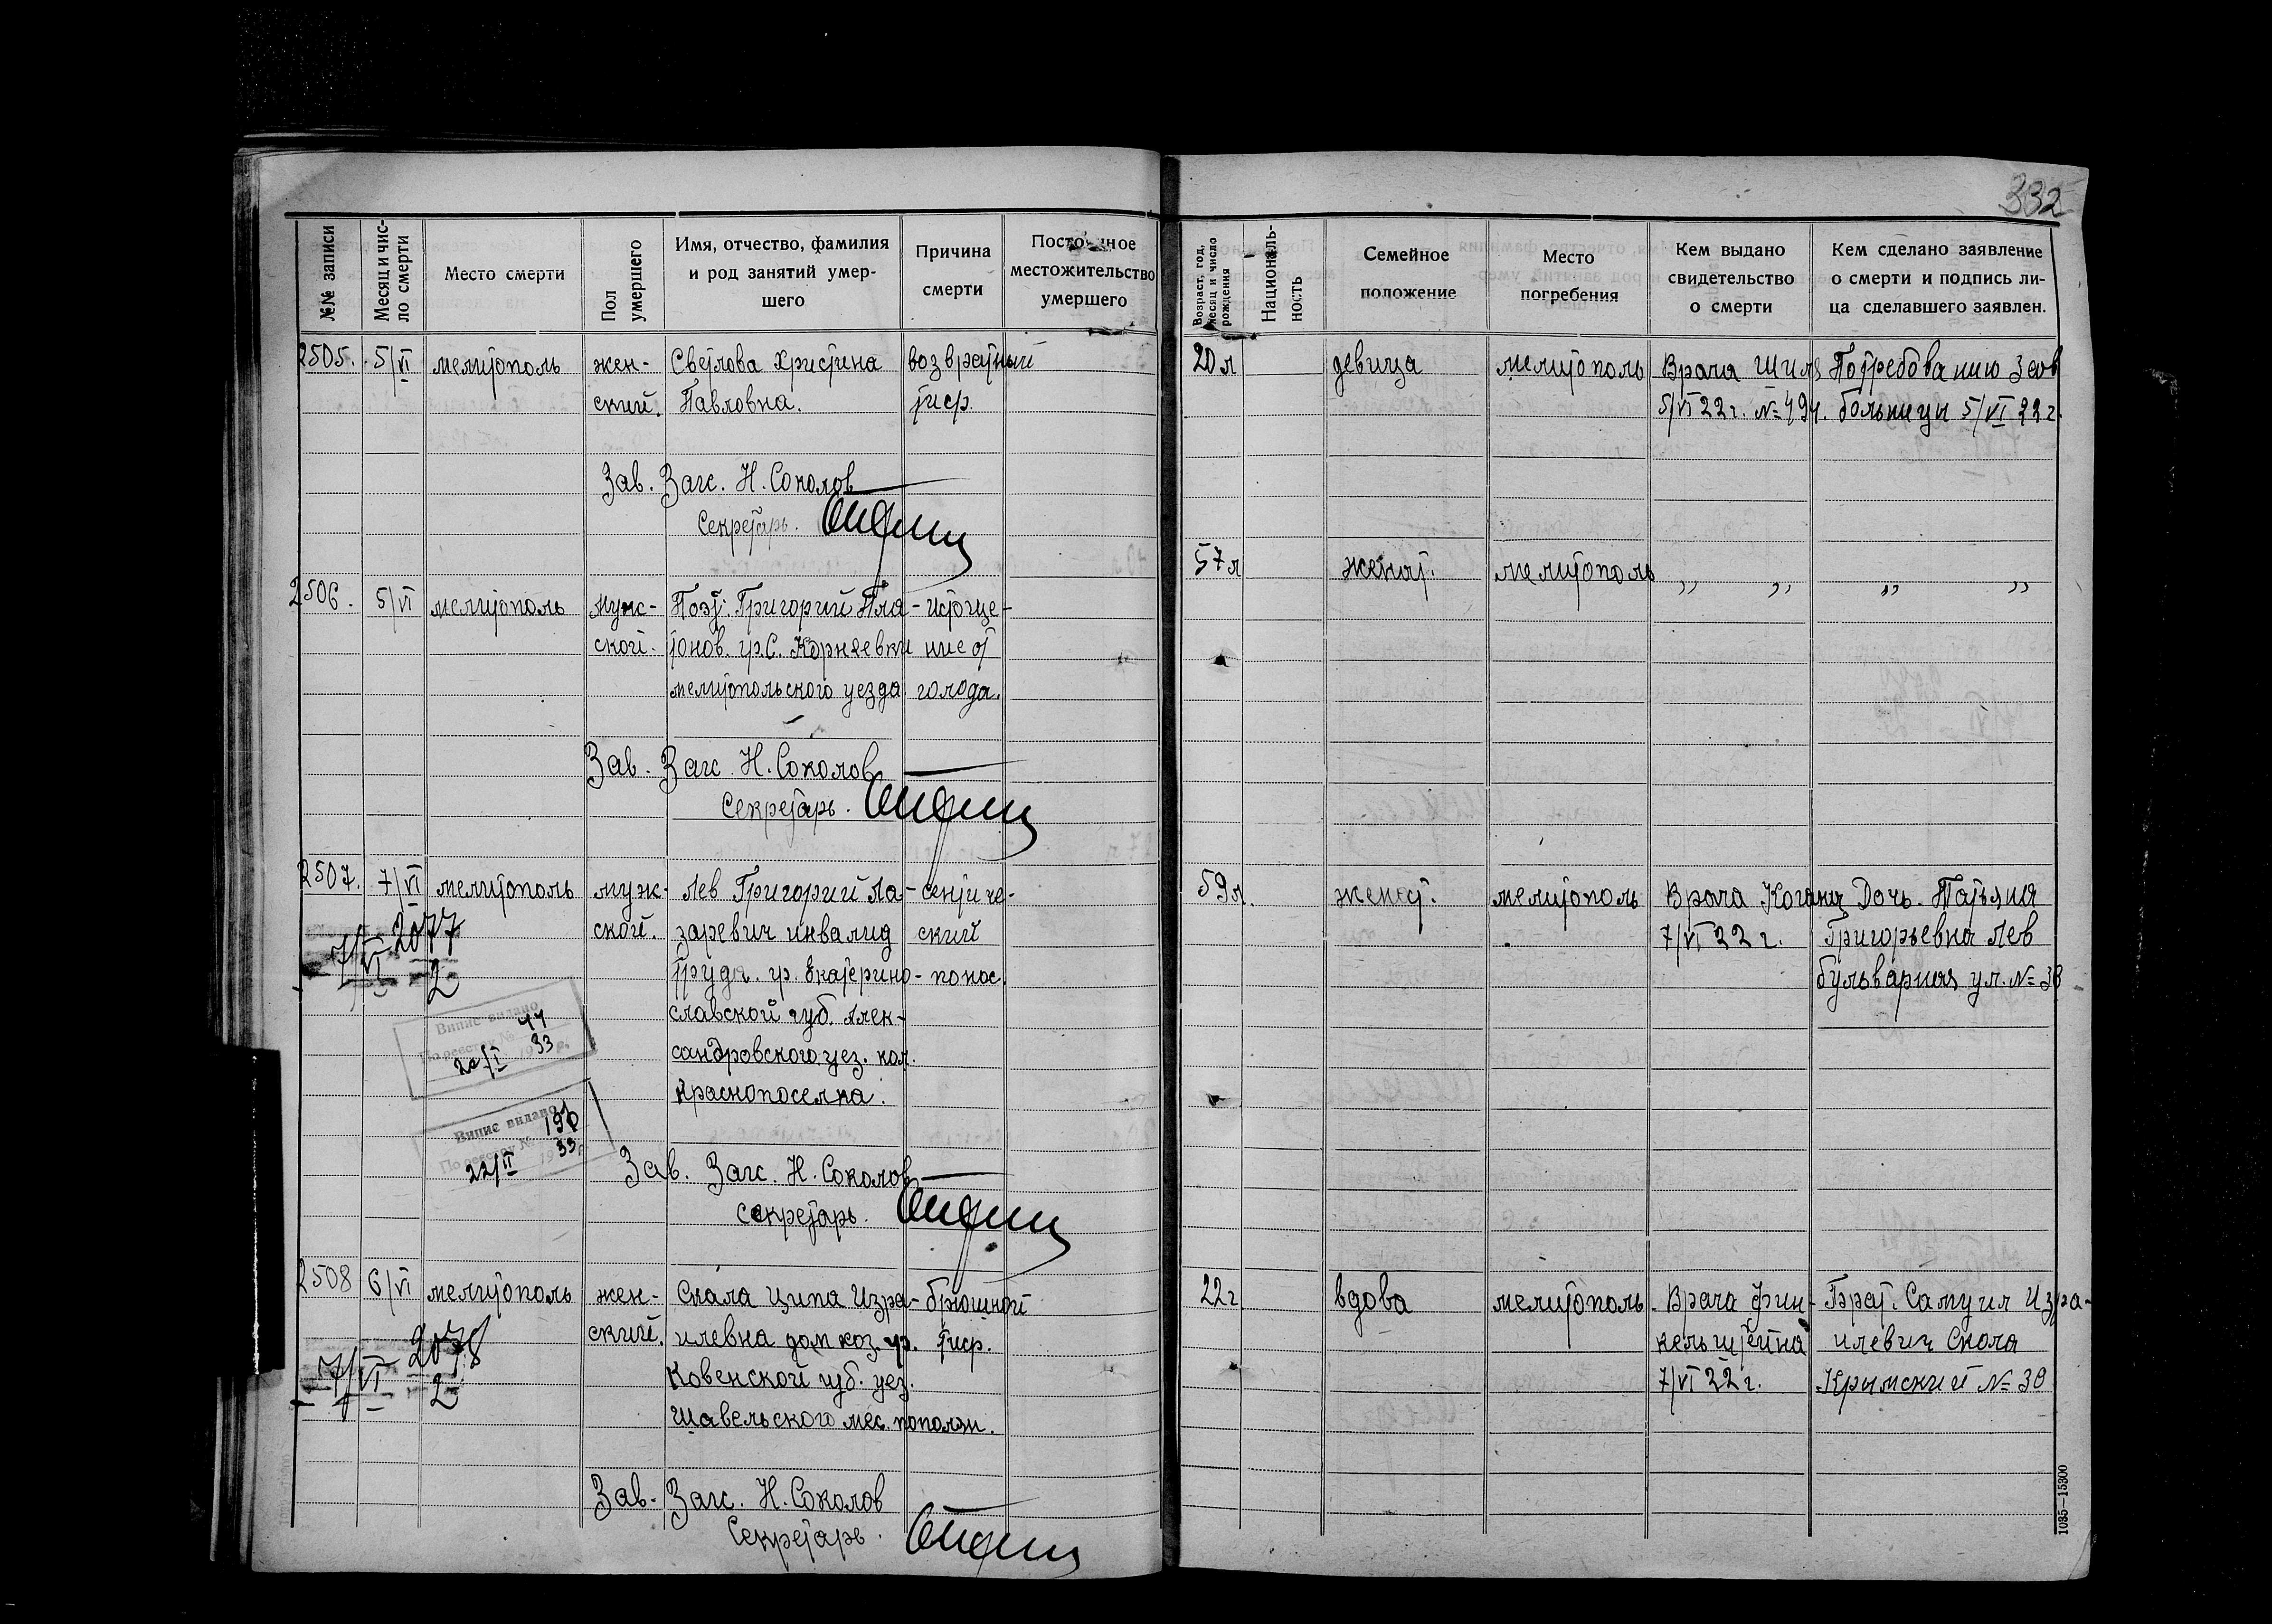 332
№№ записи
Месяц и чис-
ло смерти
Место смерти
Пол
умершего
Имя, отчество, фамилия
и род занятий умер-
шего
Причина
смерти
местожительство
умершего
Возраст, год,
месяц и число
рождения
Националь-
ность
Семейное
положение
Место
погребения
Кем выдано
свидетельство
о смерти
Кем сделано заявление
о смерти и подпись ли-
ца сделавшего заявлен.
2505. 5/VI мелитополь жен- Светлова Христина возвратный 20 л девица мелитополь Врача 
ский. Павловна. тиф. 5/VI 22 г. № 494. больницы 5/VI 22 г.
Зав. Загс. Н. Соколов
Секретарь.
2506. 5/VI мелитополь муж- Григорий Пла- истоще- 57 л женат. мелитополь „ „ „ „
ской. тонов. гр. С. Корнеевки ние от
мелитопольского уезда голода.
Зав. Загс. Н. Соколов
Секретарь.
2507. 7/VI мелитополь муж- Лев Григорий Ла- септиче- 59 л. женат. мелитополь Врача Когана Дочь. Татьяна
ской. заревич инвалид ский 7/VI 22 г. Григорьевна Лев
труда. гр. Екатерино- понос. бульварная ул. № 38
славской губ. Алек-
сандровского уез. кол.
Краснопоселка.
7/VI 2077
2
Випис видано
По реєстру № 44
22/I 1933 р.
Випис видано
По реєстру № 196
22/II 1933 р.
Зав. Загс. Н. Соколов
Секретарь.
2508 6/VI мелитополь жен- Скала Ципа Изра- брюшной 22 г вдова мелитополь. Врача Фин- Брат. Самуил Изра-
ский. илевна дом хоз. гр. тиф. кельштейна илевич Скала
Ковенской губ. уез. 7/VI 22 г. Крымский № 38
Шавельского мес.
7/VI 2078
2
Зав. Загс. Н. Соколов
Секретарь.
1035—15300